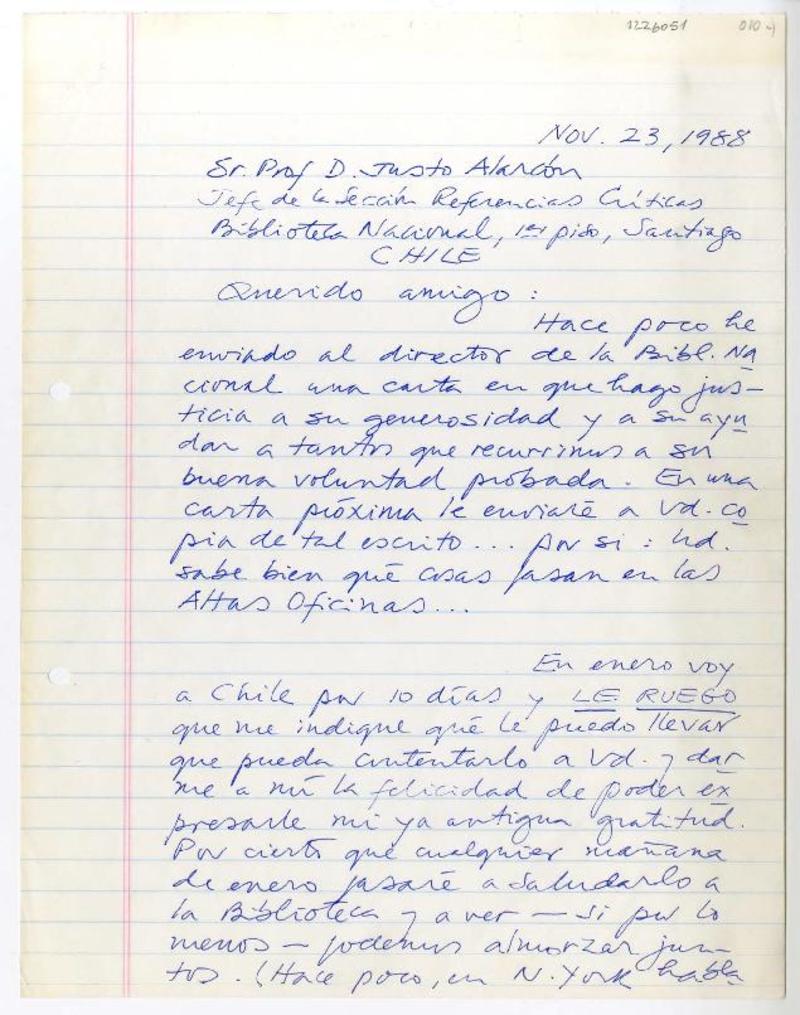 1226051 010-4
Nov. 23, 1988
Sr. Prof D. Justo Alarcón
Jefe de la Sección Referencias Críticas
Biblioteca Nacional, 1er piso, Santiago
CHILE
Querido amigo:
Hace poco he
enviado al director de la Bibl. Na
cional una carta en que hago jus-
ticia a su generosidad y a su ayu
dar a tantos que recurrimos a su
buena voluntad probada. En una
carta próxima le enviaré a Vd. co
pia de tal escrito... por si: Ud.
sabe bien qué cosas pasan en las
Altas Oficinas...
En enero voy
a Chile por 10 días y LE RUEGO
que me indique qué le puedo llevar
que pueda contentarlo a Vd. y dar
me a mí la felicidad de poder ex
presarle mi ya antigua gratitud.
Por cierto que cualquier mañana
de enero pasaré a saludarlo a
la Biblioteca y a ver – si por lo
menos – podemos almorzar jun-
tos. (Hace poco, en N. York habla